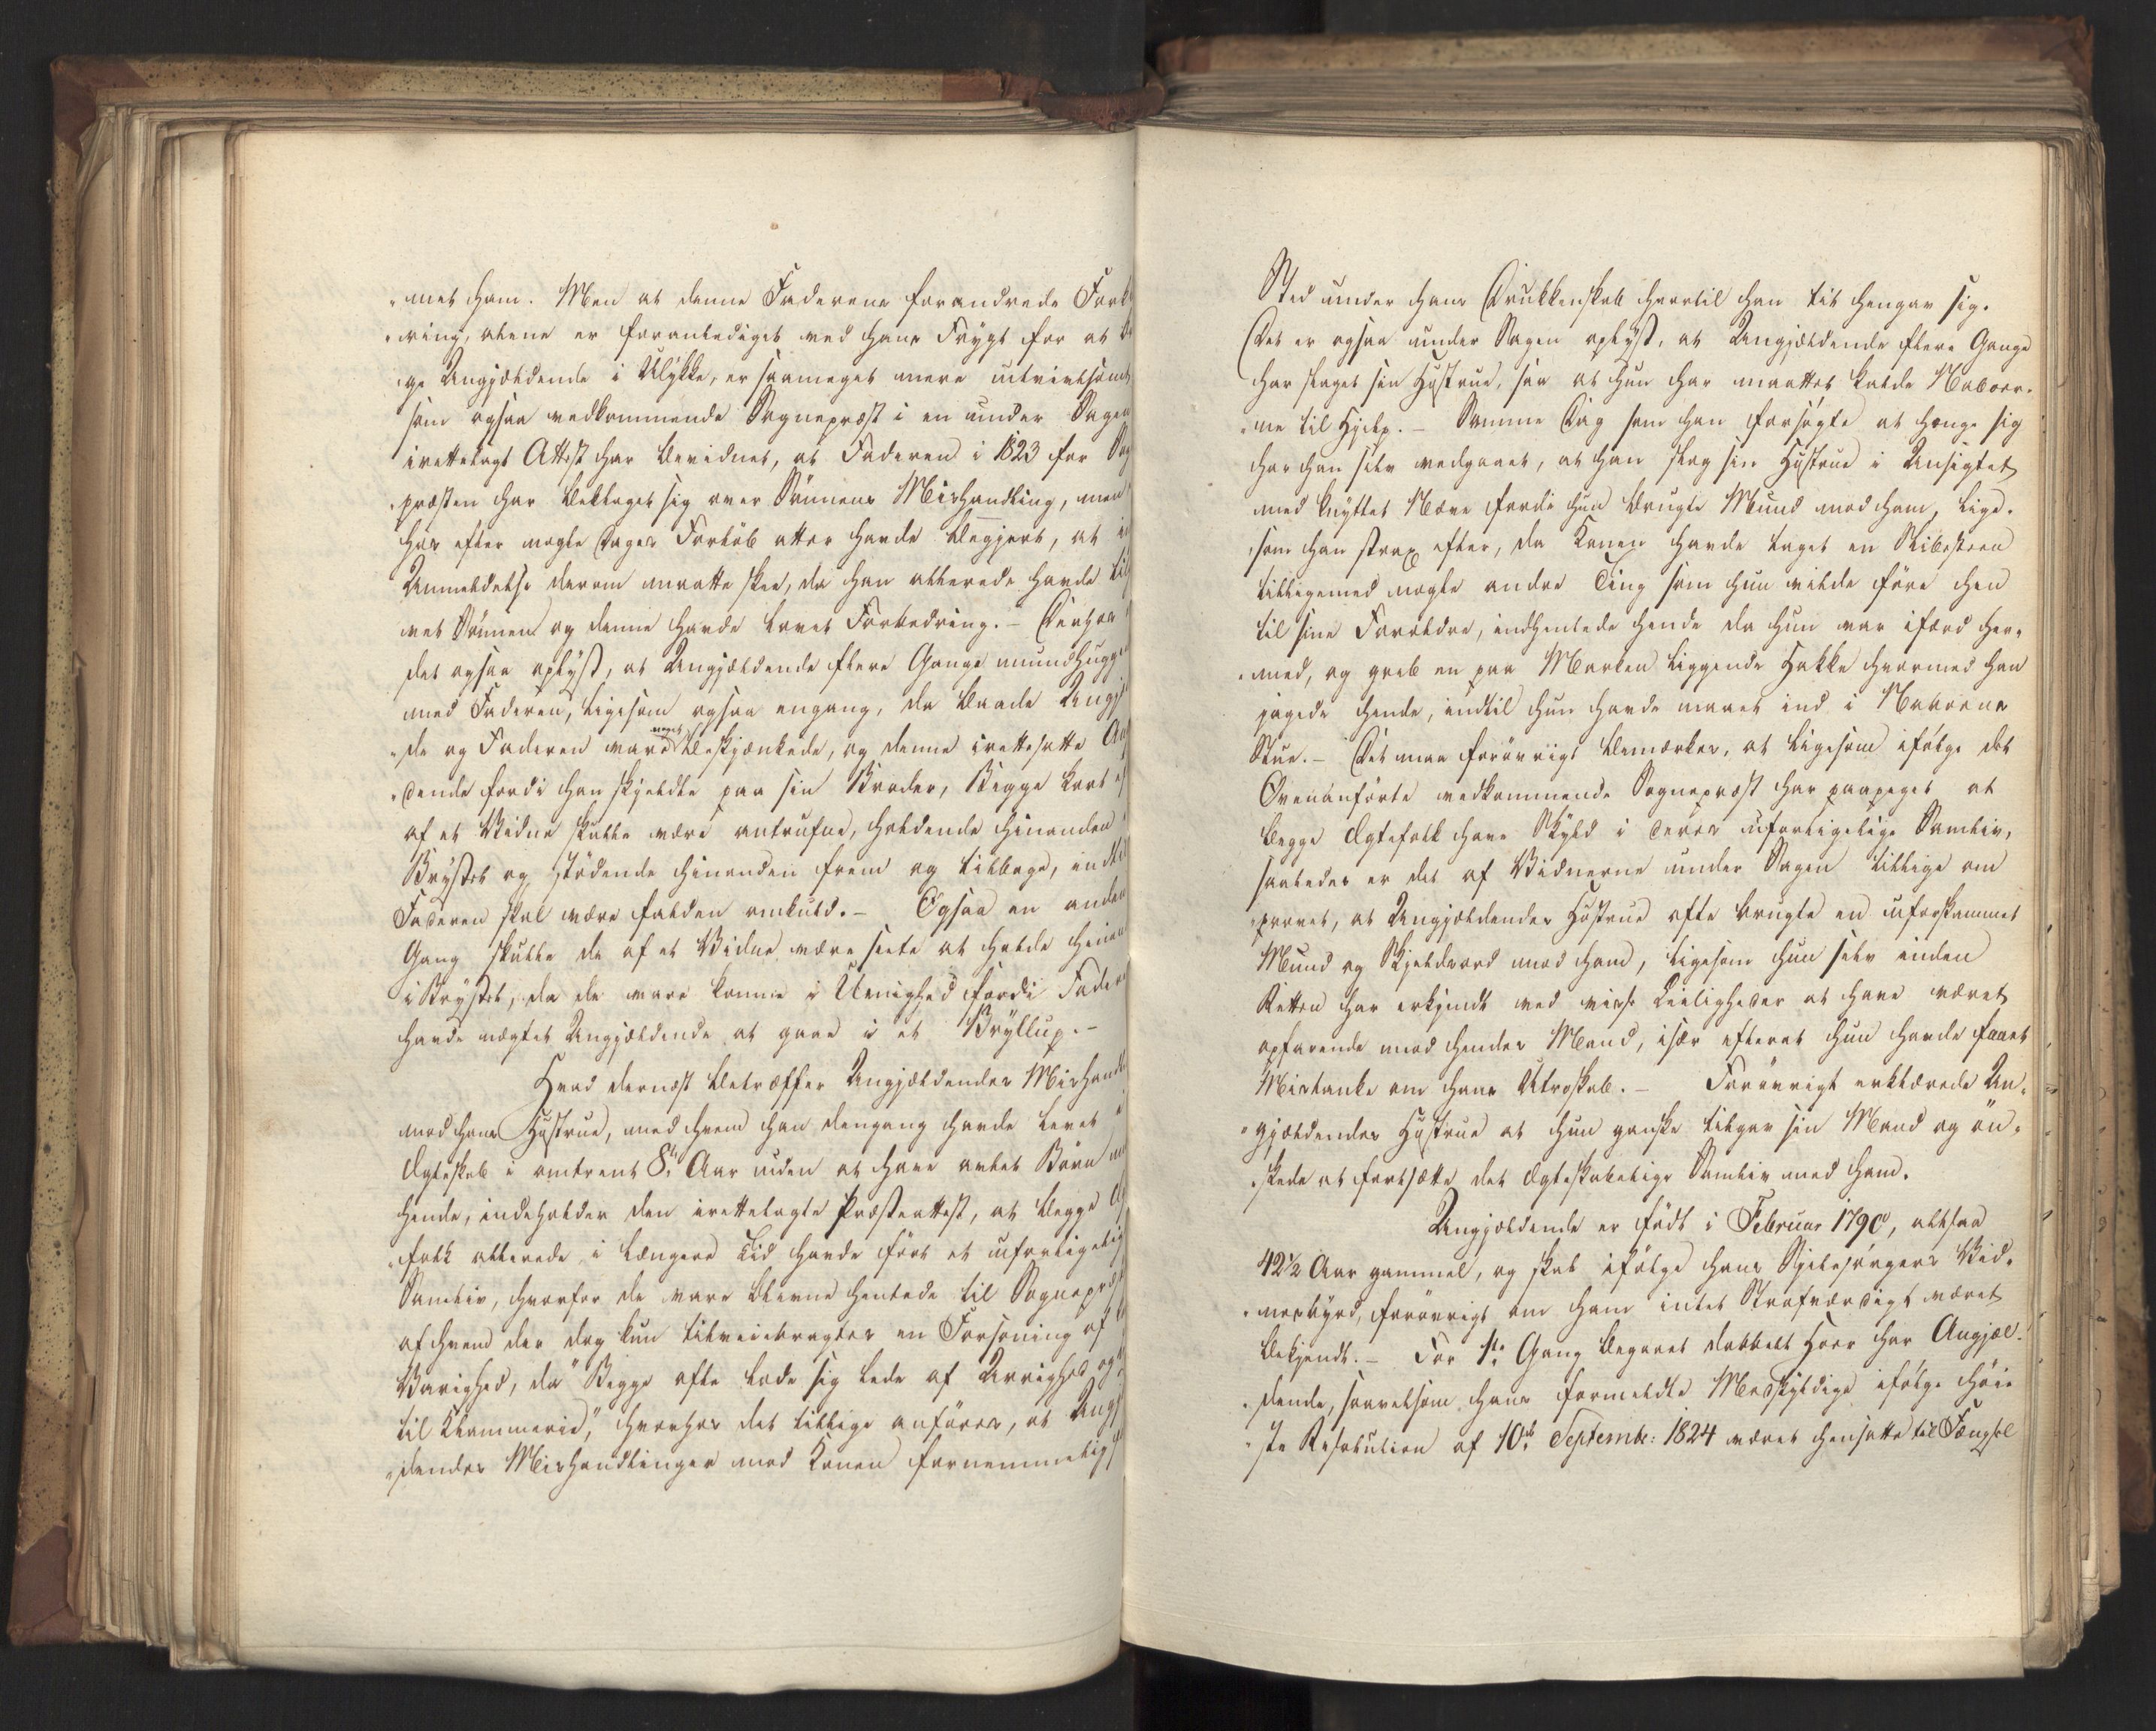 "met ham. Men at denne Faderens forandrede Fork
"ring, alene er foranlediget ved hans Frygt for at
ge Angjældende i Ulykke, er saameget mere utvivlsomt
som ogsaa vedkommende Sognepræst i en under Sagen
irettelagt Attest har bevidnet, at Faderen i 1823 for Sog
præsten har beklaget sig over Sönnens Mishandling, men
har efter nogle Dages Forløb atter havde begjert, at
Anmeldelse derom maatte skee, da han allerede havde til
vet Sönnen og denne havde lovet Forbedring. - Derhos
det ogsaa oplyst, at Angjældende flere Gange mundhugge
med Faderen, ligesom ogsaa engang, da baade Angj
"de og Faderen vare noget beskjænkede, og denne irettesatte An
"dende fordi han skjeldte paa sin Broder, Begge bleve
af et Vidne skulle være antrufne, holdende hinanden
Brystet og stödende hinanden frem og tilbage, indtil
Faderen skal være falden omkuld. - Ogsaa en anden
Gang skulle de af et Vidne være seete at holde hinan
i Brystet, da de vare komne i Uenighed fordi Fader
havde nægtet Angjældende at gaae i et Bryllup. -
Hvad dernæst betræffer Angjældendes Mishandl
mod hans Hustrue, med hvem han dengang havde levet i
Ægteskab i omtrent 8te Aar uden at have avlet Børn
hende, indeholder den irettelagte Præsteattest, at begge
"folk allerede i længere Tid havde fört et uforligelig
Samliv, hvorfor de vare blevne hentede til Sognepræst
af hvem der dog kun tilveiebragtes en Forsoning af
Varighed, da "Begge ofte lode sig lede af Arrighed og
til Klammerie," hvorhos det tillige anföres, at Angj
"dendes Mishandlinger mod Konen fornemmelig
Sted under hans Drukkenskab hvortil han tit hengav sig.
Det er ogsaa under Sagen oplyst, at Angjældende flere Gange
har slaget sin Hustrue, saa at hun har maattet kalde Naboer-
"ne til Hjelp. - Samme Dag som han forsögte at hænge sig
har han selv vedgaaet, at han slog sin Hustrue i Ansigtet
med knyttet Næve fordi hun brugte Mund mod ham, lige-
"som han strax efter, da Konen havde taget en Slibesteen
tilligemed nogle andre Ting som hun vilde före hen
til sine Forældre, indhentede hende da hun var ifærd her-
"med, og greb en paa Marken liggende Hakke hvormed han
jagede hende, indtil hun havde naaet ind i Naboens
Stue. - Det maa forövrigt bemærkes, at ligesom ifølge det
Ovenanförte vedkommende Sognepræst har paapeget at
begge Ægtefolk have Skyld i deres uforligelige Samliv,
saaledes er det af Vidnerne under Sagen tillige om
"provet, at Angjældendes Hustrue ofte brugte en uforskammet
Mund og Skjeldsord mod ham, ligesom hun selv inden
Retten har erkjendt ved visse Leiligheder at have været
opfarende mod hendes Mand, især efterat hun havde faaet
Mistanke om hans Utroskab. - Forövrigt erklærede An-
"gjældendes Hustrue at hun ganske tilgav sin Mand og ön-
"skede at fortsætte det ægteskabelige Samliv med ham.
Angjældende er födt i Februar 1790, altsaa
42½ Aar gammel, og skal ifølge hans Sjelesörgers Vid-
"nesbyrd, forövrigt om ham intet Strafværdigt været
bekjendt. - For 1ste Gang begaaet dobbelt Hoer har Angjæl-
"dende, saavelsom hans formeldte Medskyldige ifølge höie
"ste Resolution af 10de Septembr: 1824 været hensatte til Fængsel